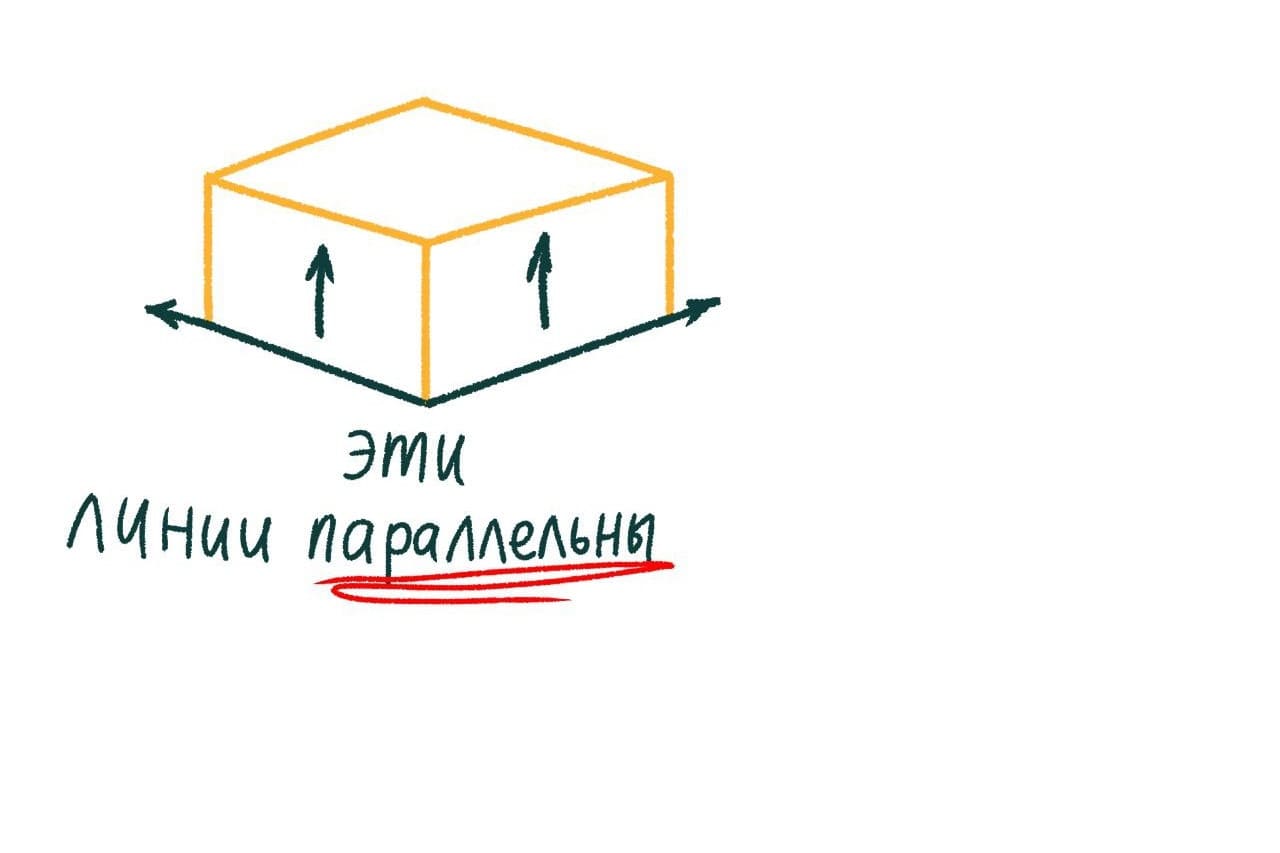 эти
линии параллельны